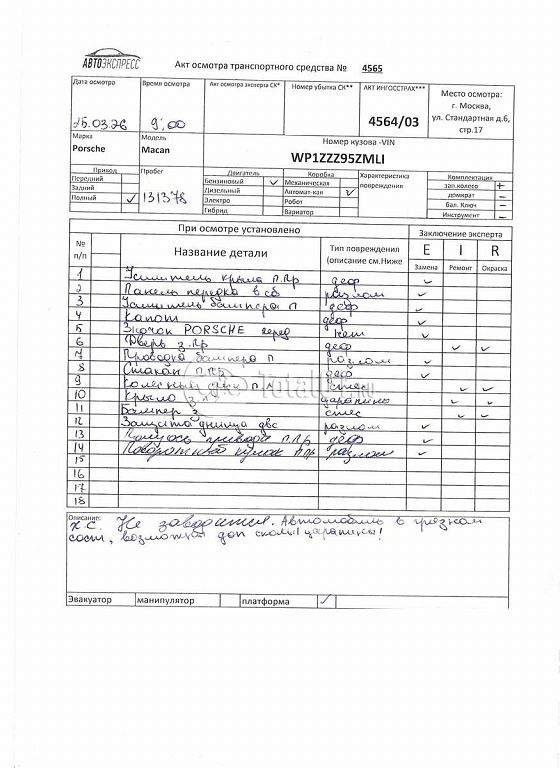 АВТОЭКСПРЕСС
Акт осмотра транспортного средства № 4565
Дата осмотра Время осмотра Акт осмотра эксперта СК* Номер убытка СК** АКТ ИНГОССТРАХ*** Место осмотра:
г. Москва,
25.03.26 9:00 4564/03 ул. Стандартная д.6,
стр.17
Марка Модель Номер кузова -VIN
Porsche Macan WP1ZZZ95ZMLI
Привод Пробег Двигатель Коробка Характеристика повреждения Комплектация
Передний Бензиновый ✓ Механическая зап.колесо +
Задний 131378 Дизельный Автомат-кая ✓ домкрат –
Полный ✓ Электро Робот бал. Ключ –
Гибрид Вариатор Инструмент –
При осмотре установлено Заключение эксперта
№ п/п Название детали Тип повреждения (описание см.Ниже E I R
Замена Ремонт Окраска
1 Усилитель крыла П.Пр деф ✓
2 Панель передка в сб разлом ✓
3 Усилитель бампера П деф ✓
4 Капот деф ✓
5 Значок PORSCHE перед ✓
6 Дверь з.Пр деф ✓ ✓
7 бампера П разлом ✓
8 Стакан П.Пр деф ✓
9 диск П.Л ✓ ✓
10 Крыло царапина ✓ ✓
11 Бампер з ✓ ✓
12 Защита днища двс разлом ✓
13 привода П.Пр деф ✓
14 Поворотный кулак ППр разлом ✓
15
16
17
18
Описание:
Х.С. Не заводится. Автомобиль в грязном
сост, возможны доп сколы царапины!
Эвакуатор манипулятор платформа ✓
Total